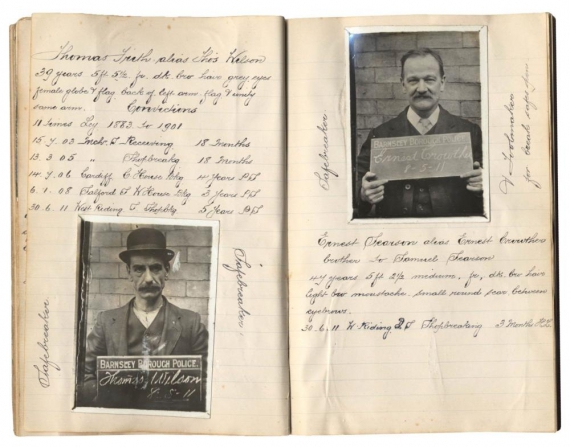 Thomas Frith alias Thos Wilson
39 years 5ft 5½ fr. dk. bro hare grey eyes
female globe & flag. back of left arm. flag & unity
same arm. Convictions
11 times Ley 1883 to 1901
15. 7. 03 Receiving 18 months
13. 3 05 " Shopbreakg 18 months
14. 7. 06 Cardiff C House Bkg 4 years PS
6. 1. 08 Salford S W House Bkg 3 years PS
30. 6. 11 West Riding S Shopbkg 5 years PS
Safebreaker
Safebreaker
BARNSLEY BOROUGH POLICE.
Thomas Wilson
5-11
Safebreaker
BARNSLEY BOROUGH POLICE.
Ernest Crowther
5-11
Toolmaker
for
Ernest Pearson alias Ernest Crowther
brother to Samuel Pearson
47 years 5ft 2½ medium, fr, dk. bro hare
light bro moustache. small round scar between
eyebrows.
30. 6. 11 W Riding Shopbreaking 3 Months